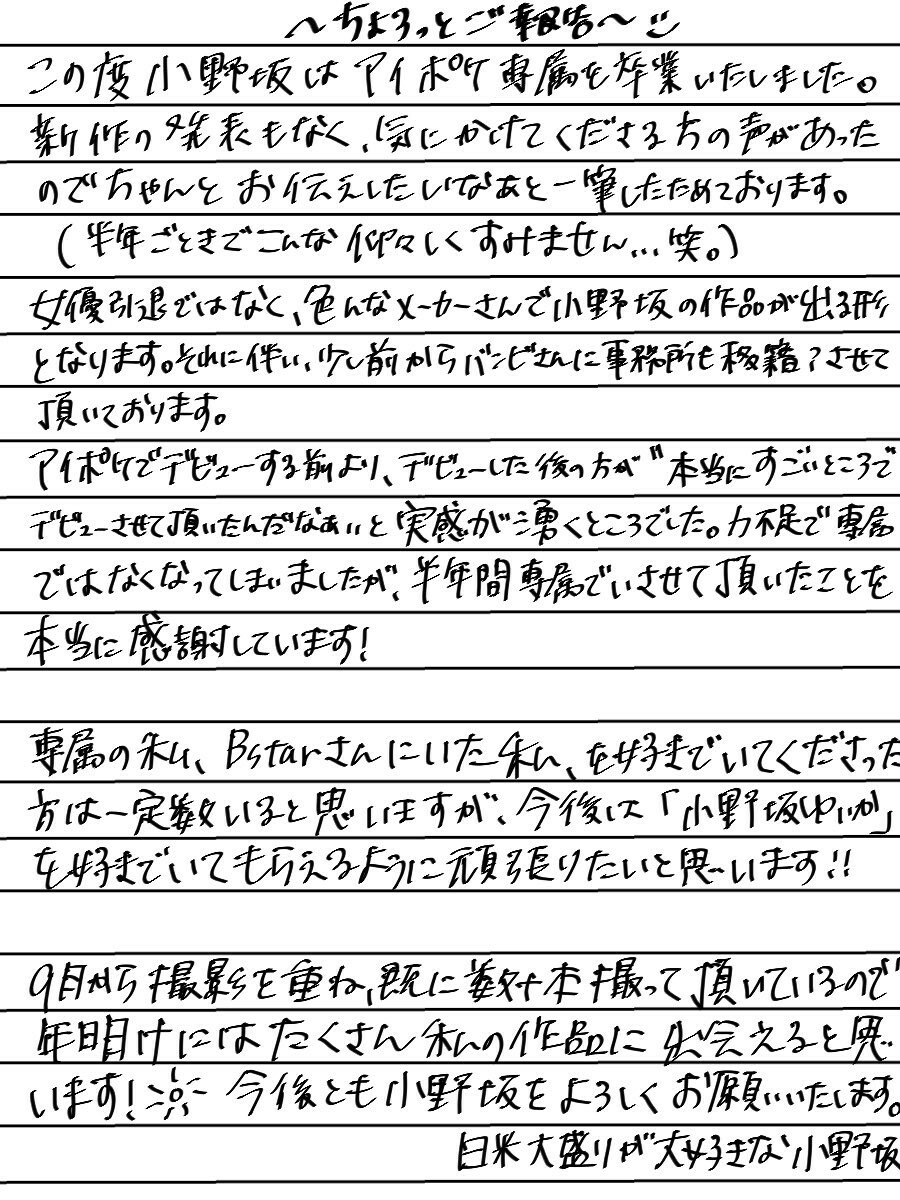 〜ちょろっとご報告〜
この度小野坂はアイポケ専属を卒業いたしました。
新作の発表もなく、気にかけてくださる方の声があった
のでちゃんとお伝えしたいなあと一筆したためております。
(半年ごときでこんな仰々しくすみません...笑。)
女優引退ではなく、色んなメーカーさんで小野坂の作品が出る形
となります。それに伴い、少し前からバンビさんに事務所も移籍?させて
頂いております。
アイポケでデビューする前より、デビューした後の方が"本当にすごいところで
デビューさせて頂いたんだなぁ"と実感が湧くところでした。力不足で専属
ではなくなってしまいましたが、半年間専属でいさせて頂いたことを
本当に感謝しています!
専属の私、Bstarさんにいた私、を好きでいてくださった
方は一定数いると思いますが、今後は「小野坂ゆいか」
を好きでいてもらえるように頑張りたいと思います!!
9月から撮影を重ね、既に数十本撮って頂いているので
年明けにはたくさん私の作品に出会えると思
います! 今後とも小野坂をよろしくお願いいたします。
白米大盛りが大好きな小野坂